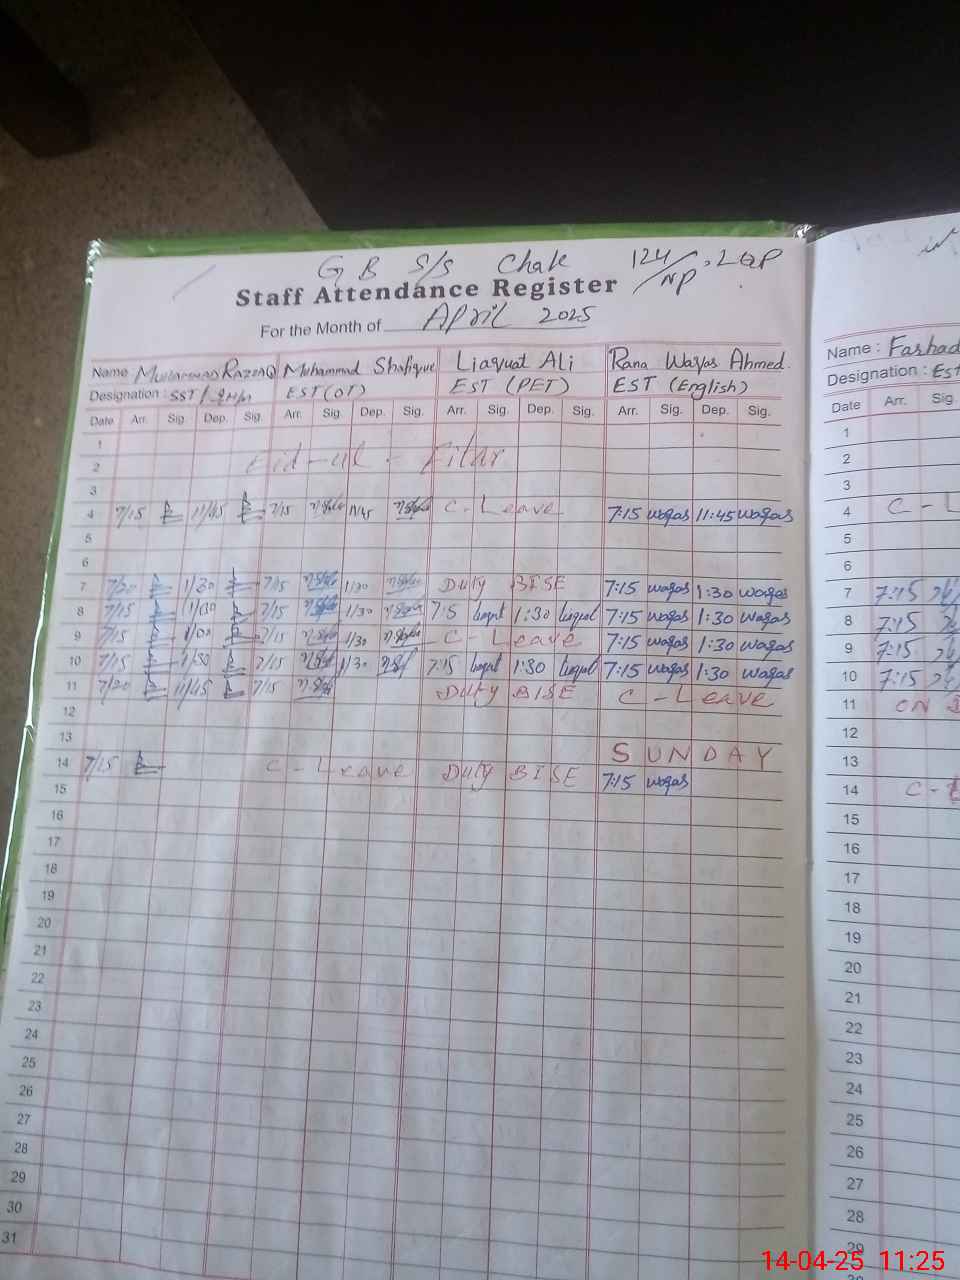 G B S/S Chak 124/NP, LQP
Staff Attendance Register
For the Month of April 2025
Name Muhammad Razzaq Muhammad Shafique Liaquat Ali Rana Waqas Ahmed.
Designation : SST EST (OT) EST (PET) EST (English)
Date Arr. Sig. Dep. Sig. Arr. Sig. Dep. Sig. Arr. Sig. Dep. Sig. Arr. Sig. Dep. Sig.
1
2 Eid-ul-Fitar
3
4 7/15 11/45 7/15 11/45 C-Leave 7:15 waqas 11:45 waqas
5
6
7 7/20 1/30 7/15 1/30 Duty BISE 7:15 waqas 1:30 waqas
8 7/15 1/30 7/15 1/30 7:15 liaquat 1:30 liaquat 7:15 waqas 1:30 waqas
9 7/15 1/30 7/15 1/30 C-Leave 7:15 waqas 1:30 waqas
10 7/15 1/30 7/15 1/30 7:15 liaquat 1:30 liaquat 7:15 waqas 1:30 waqas
11 7/20 11/45 7/15 Duty BISE C-Leave
12
13 SUNDAY
14 7/15 C-Leave Duty BISE 7:15 waqas
15
16
17
18
19
20
21
22
23
24
25
26
27
28
29
30
31
Name : Farhad
Designation : EST
Date Arr. Sig.
1
2
3
4 C-L
5
6
7 7:15
8 7:15
9 7:15
10 7:15
11 ON
12
13
14 C-
15
16
17
18
19
20
21
22
23
24
25
26
27
28
29
14-04-25 11:25